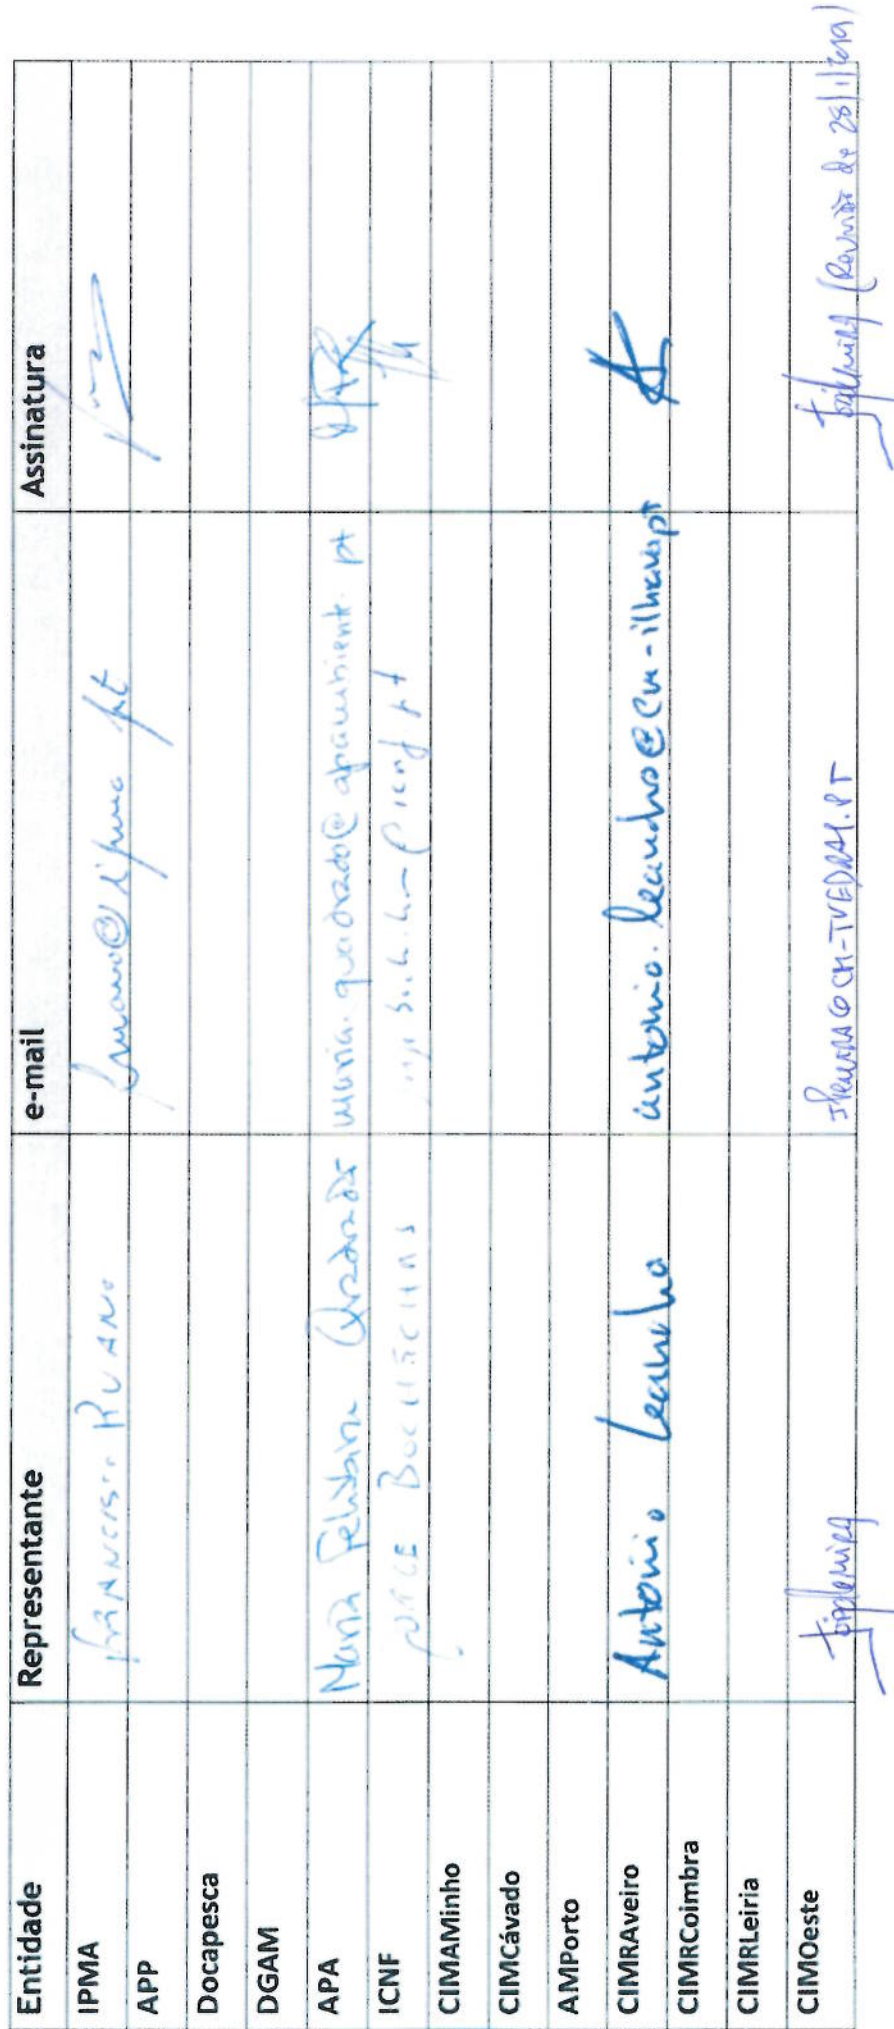 Entidade Representante e-mail Assinatura
IPMA FRANCISCO RUANO fruano@ipma.pt
APP
Docapesca
DGAM
APA Maria Felisbina Quadrado maria.quadrado@apambiente.pt
ICNF
CIMAMinho
CIMCávado
AMPorto
CIMRAveiro Antonio Leandro antonio.leandro@cm-ilhavo.pt
CIMRCoimbra
CIMRLeiria
CIMOeste (Reunião de 28/1/2019)